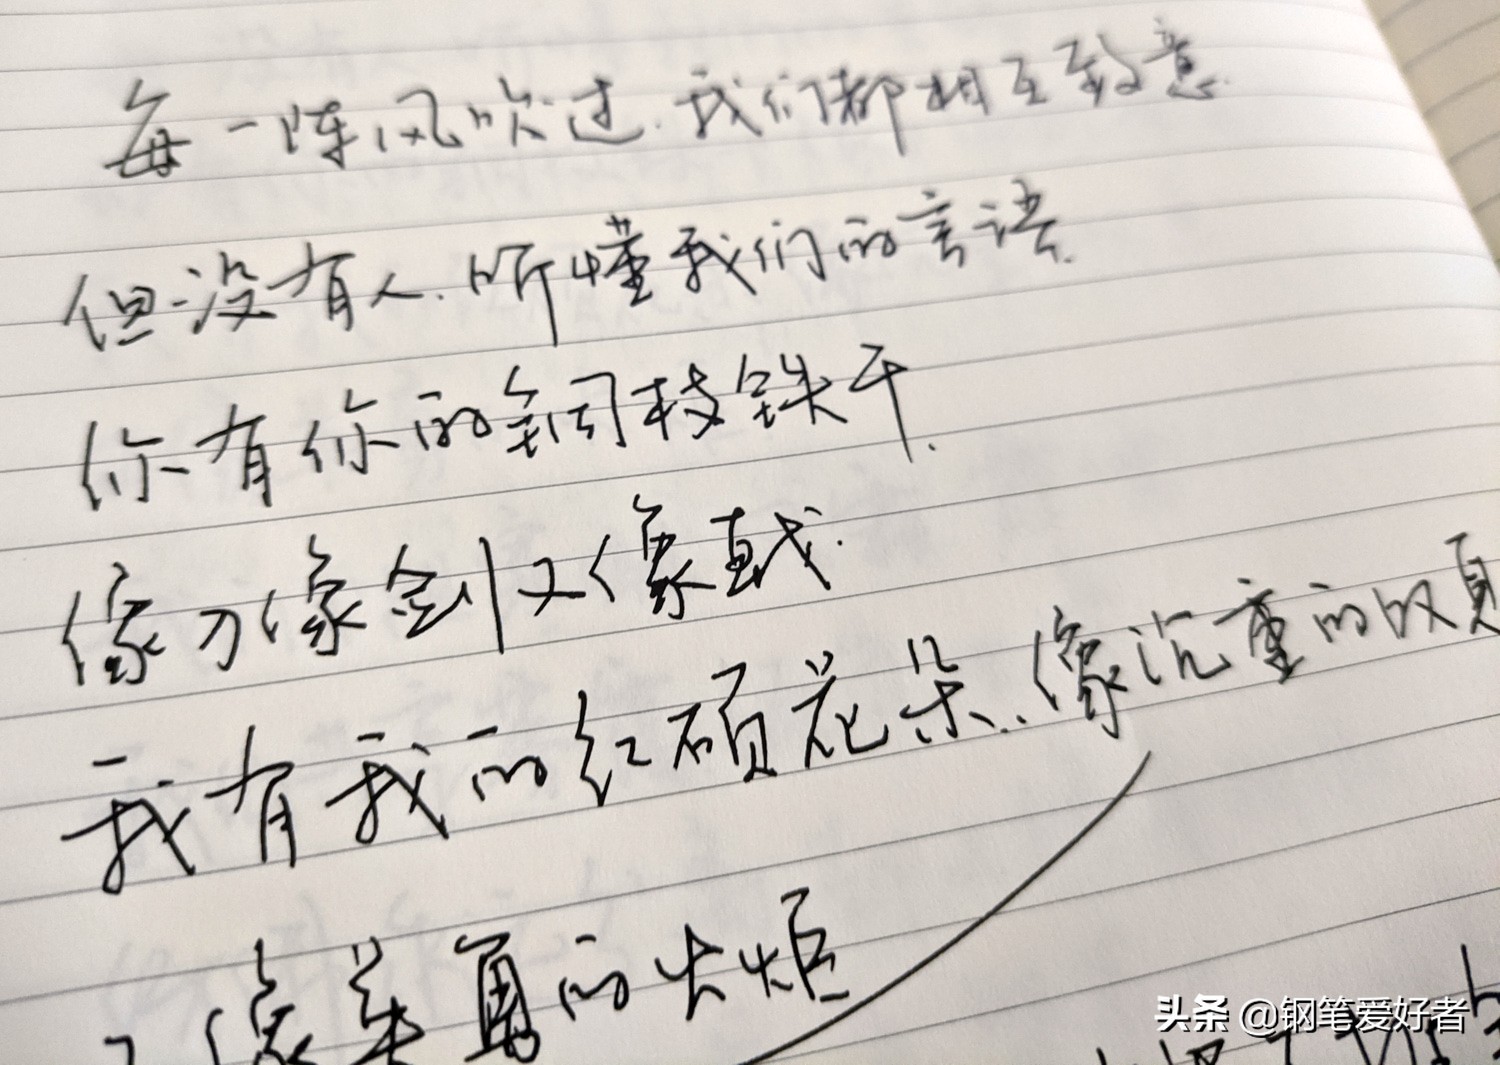 每一阵风吹过.我们都相互致意.
但没有人.听懂我们的言语.
你有你的铜枝铁干.
像刀像剑又像戟.
我有我的红硕花朵.像沉重的叹息
又像英勇的火炬
头条 @钢笔爱好者